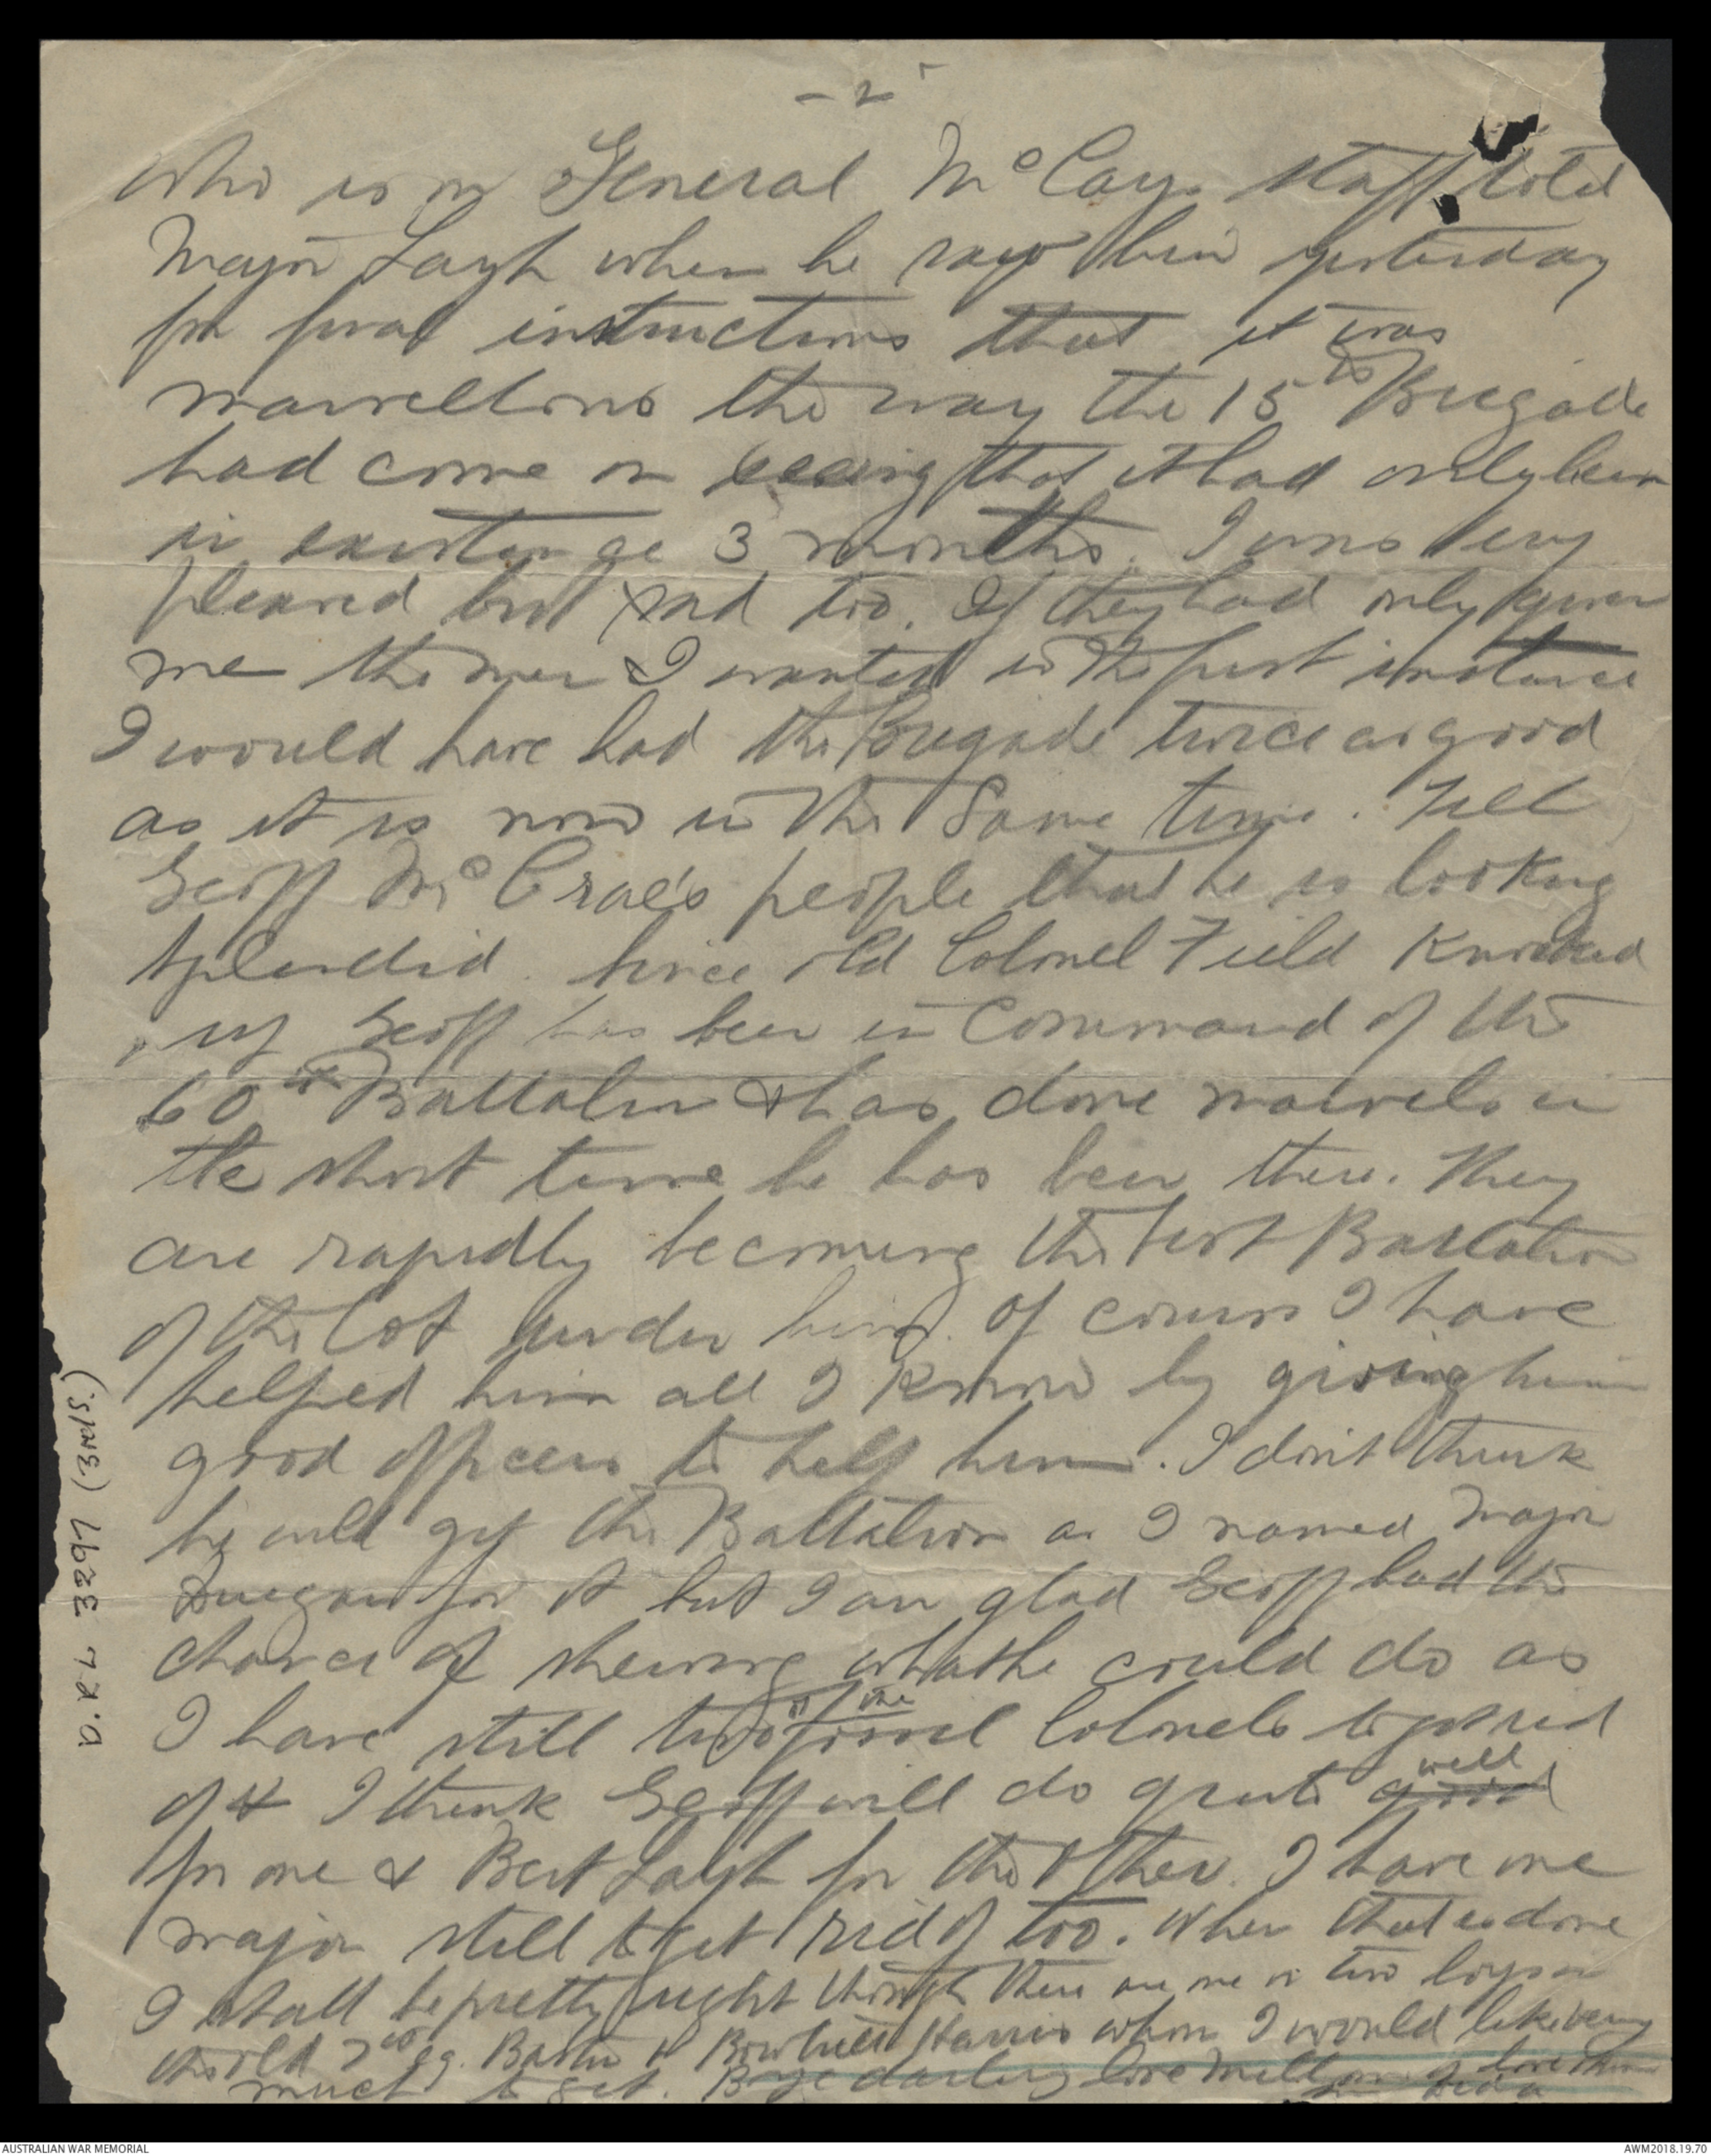 - 2 -
who is on General McCay's staff told
Major Layh when he saw him yesterday
for final instructions that it was
marvellous the way the 15th Brigade
had come on seeing that it had only been
in existence 3 months. I was very
pleased but sad too. If they had only given
me the men I wanted in the first instance
I would have had the Brigade twice as good
as it is now in the same time. Tell
Geoff McCrae's people that he is looking
splendid. Since old Colonel Field knocked
up Geoff has been in Command of the
60th Battalion & has done marvels in
the short time he has been there. They
are rapidly becoming the best Battalion
of the lot under him. Of course I have
helped him all I know by giving him
good officers to help him. I don't think
he will get the Battalion as I named Major
Duigan for it but I am glad Geoff had the
chance of shewing what he could do as
I have still two of the fossil Colonels to get rid
of & I think Geoff will do quite well good
for one & Bert Layh for the other. I have one
major still to get rid of too. When that is done
I shall be pretty right though there are one or two boys in
the old 7th eg. Bastin & Bowhill Harris whom I would like very
much to get. Bye darling love million
love them
D.R.L 3297 (3rd/s.)
AUSTRALIAN WAR MEMORIAL
AWM2018.19.70